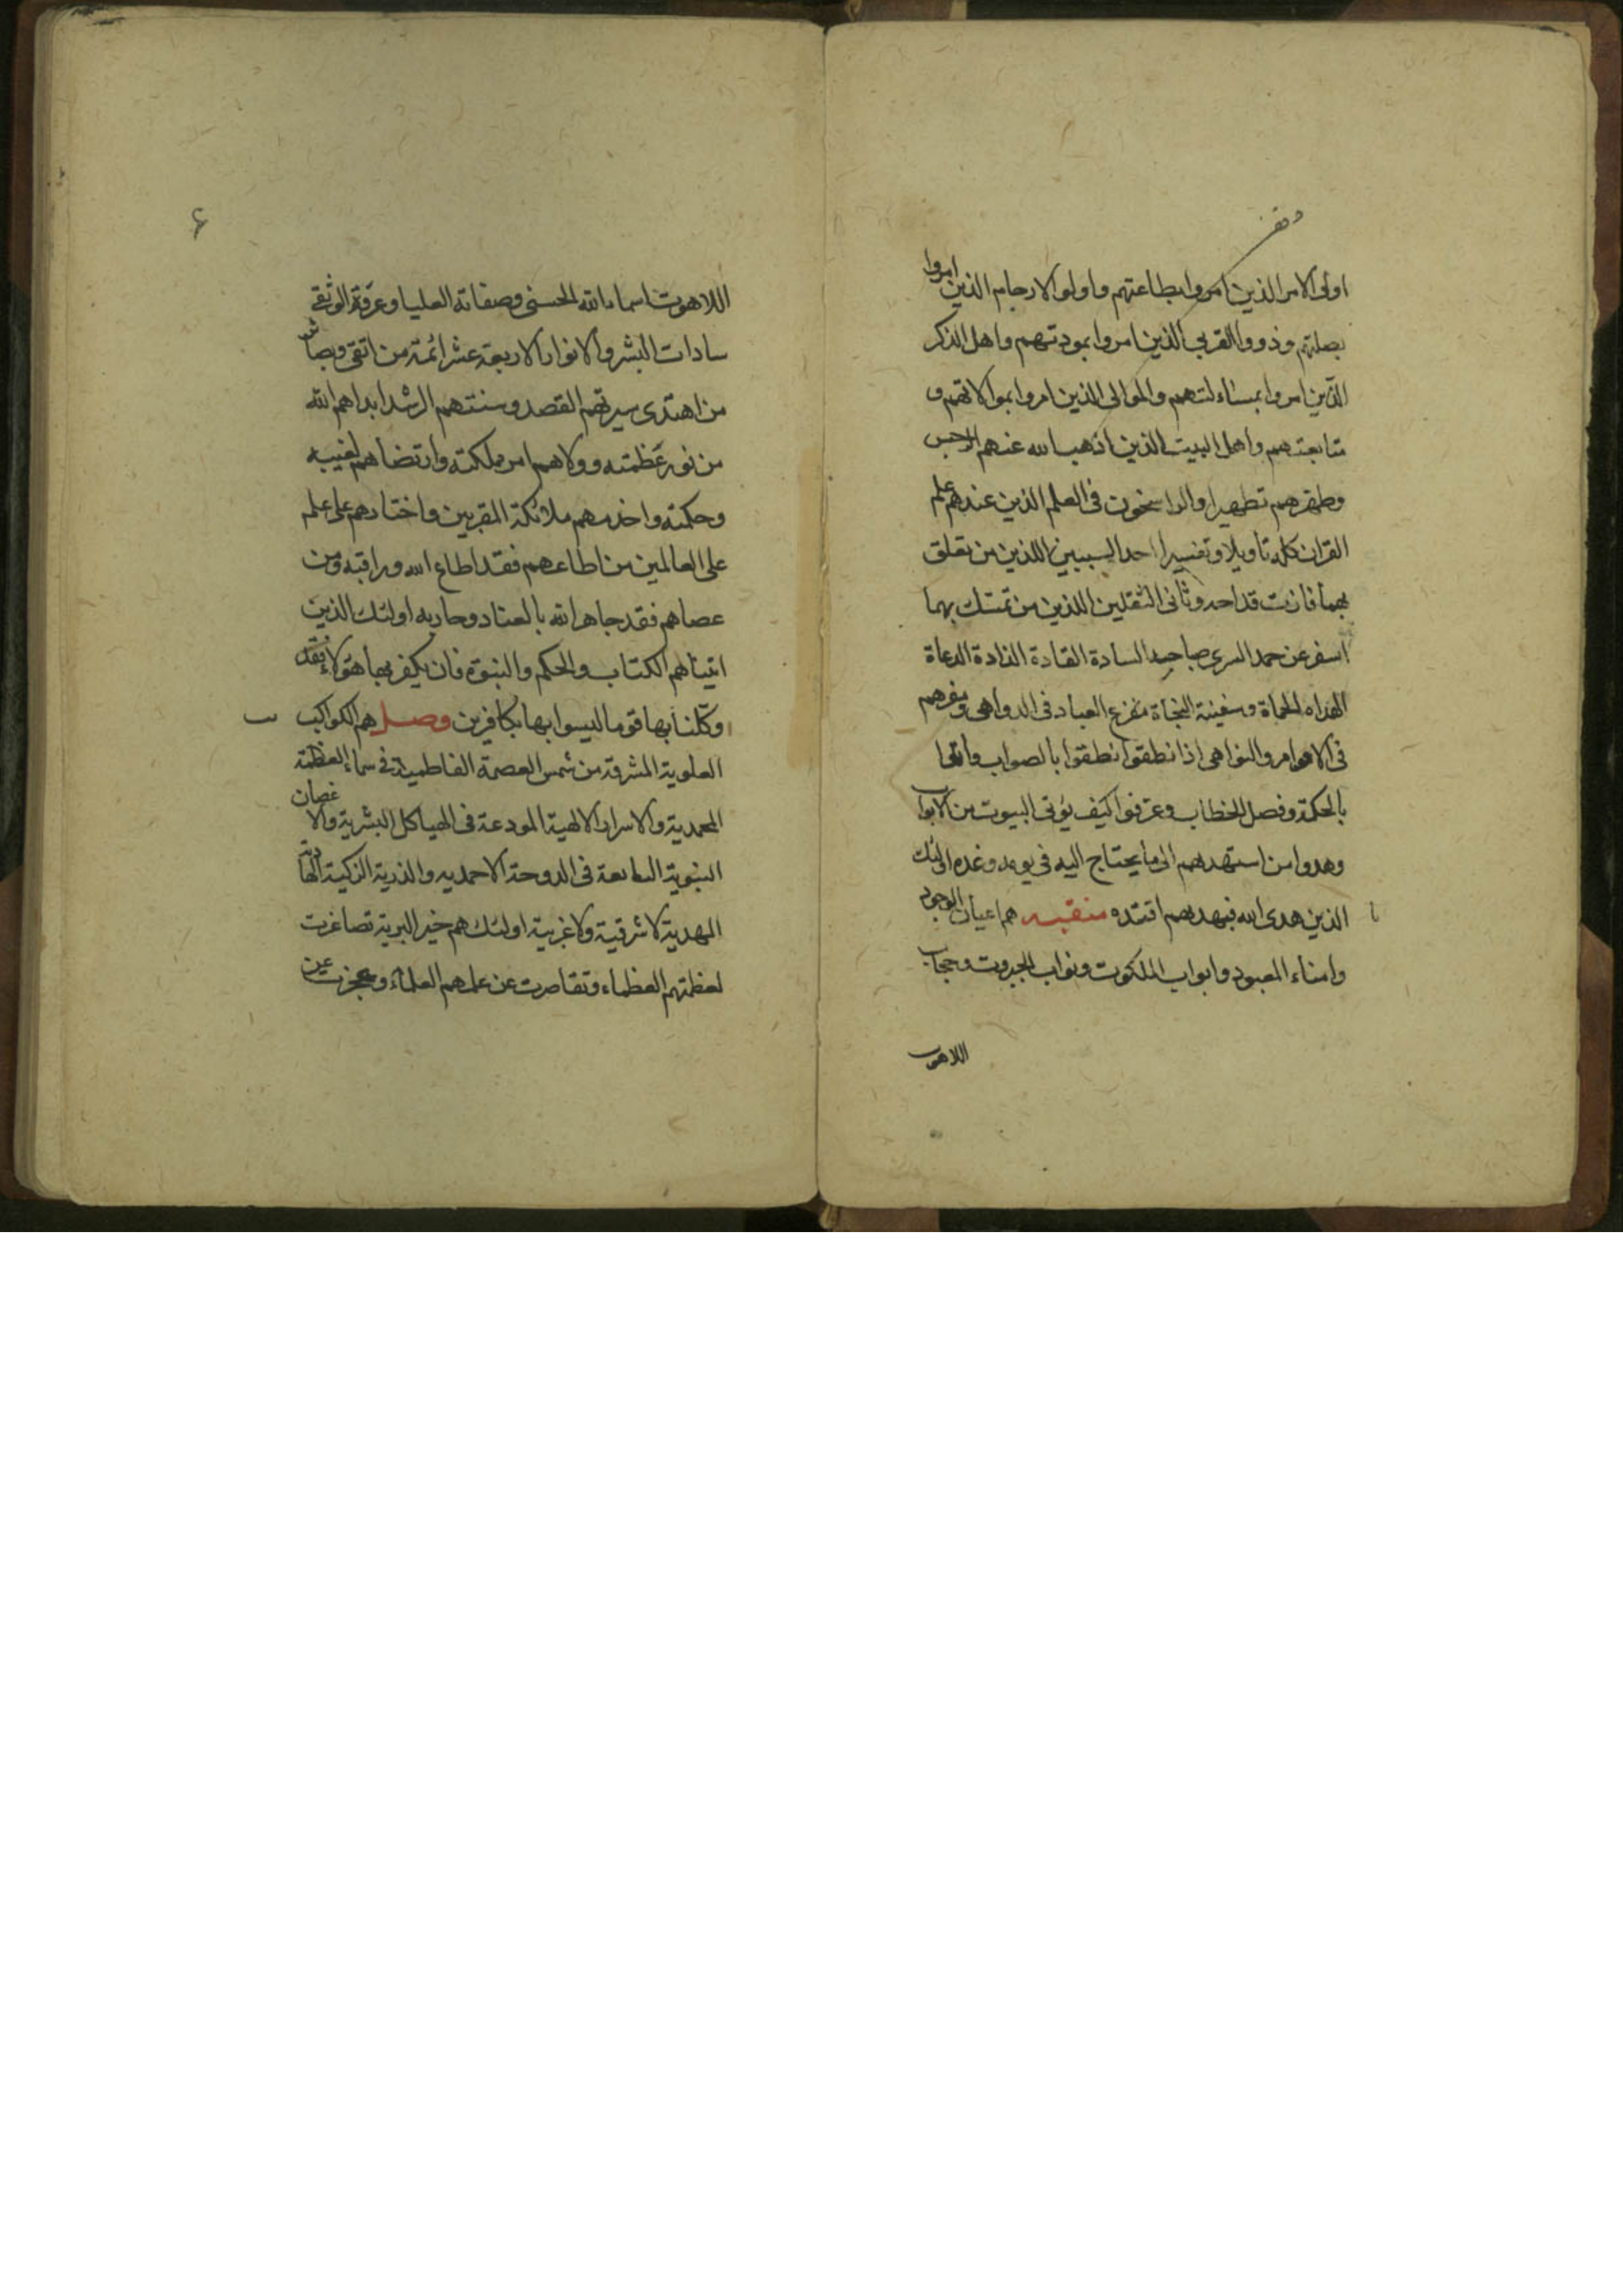 وقف
اولى الامر الذين امروا بطاعتهم واولو الارحام الذين امروا
بصلتهم وذوو القربى الذين امروا بمودتهم واهل الذكر
الذين امروا بمسائلتهم والموالى الذين امروا بموالاتهم و
متابعتهم واهل البيت الذين اذهب الله عنهم الرجس
وطهرهم تطهيرا والراسخون فى العلم الذين عندهم علم
القران كله تاويلا وتفسيرا احد السببين اللذين من تعلق
بهما فازت قداحه وثانى الثقلين اللذين من تمسك بهما
اسفر عن حمد السرى صباحه السادة القادة الذادة الدعاة
الهداه الحماة وسفينة النجاة مفزع العباد فى الدواهى ومفرهم
فى الاوامر والنواهى اذا نطقوا نطقوا بالصواب واتوا
بالحكمة وفصل الخطاب وعرفوا كيف يؤتى البيوت من الابواب
وهدوا من استهداهم الى ما يحتاج اليه فى يومه وغده اولئك
الذين هدى الله فبهديهم اقتده منقبه هم اعيان الوجود
وامناء المعبود وابواب الملكوت ونواب الجبروت وحجاب
اللاهوت
۶
اللاهوت اسماء الله الحسنى وصفاته العليا وعروة الوثقى
سادات البشر والانوار الاربعة عشر ائمة من اتقى وبصائر
من اهتدى سيرتهم القصد وسنتهم الرشد ابداهم الله
من نور عظمته وولاهم امر مملكته وارتضاهم لغيبه
وحكمته واخدمهم ملائكته المقربين واختارهم على علم
على العالمين من اطاعهم فقد اطاع الله وراقبه ومن
عصاهم فقد جاهر الله بالعناد وحاربه اولئك الذين
اتيناهم الكتاب والحكم والنبوة فان يكفر بها هؤلاء فقد
وكلنا بها قوما ليسوا بها بكافرين وصل هم الكواكب
العلوية المشرقة من شمس العصمة الفاطمية فى سماء العظمة
المحمدية والاسرار الالهية المودعة فى الهياكل البشرية والاغصان
النبوية النابعة فى الدوحة الاحمديه والذرية الزكية الهادية
المهدية لا شرقية ولا غربية اولئك هم خير البرية تصاغرت
لعظمتهم العظماء وتقاصرت عن علمهم العلماء وعجزت عن